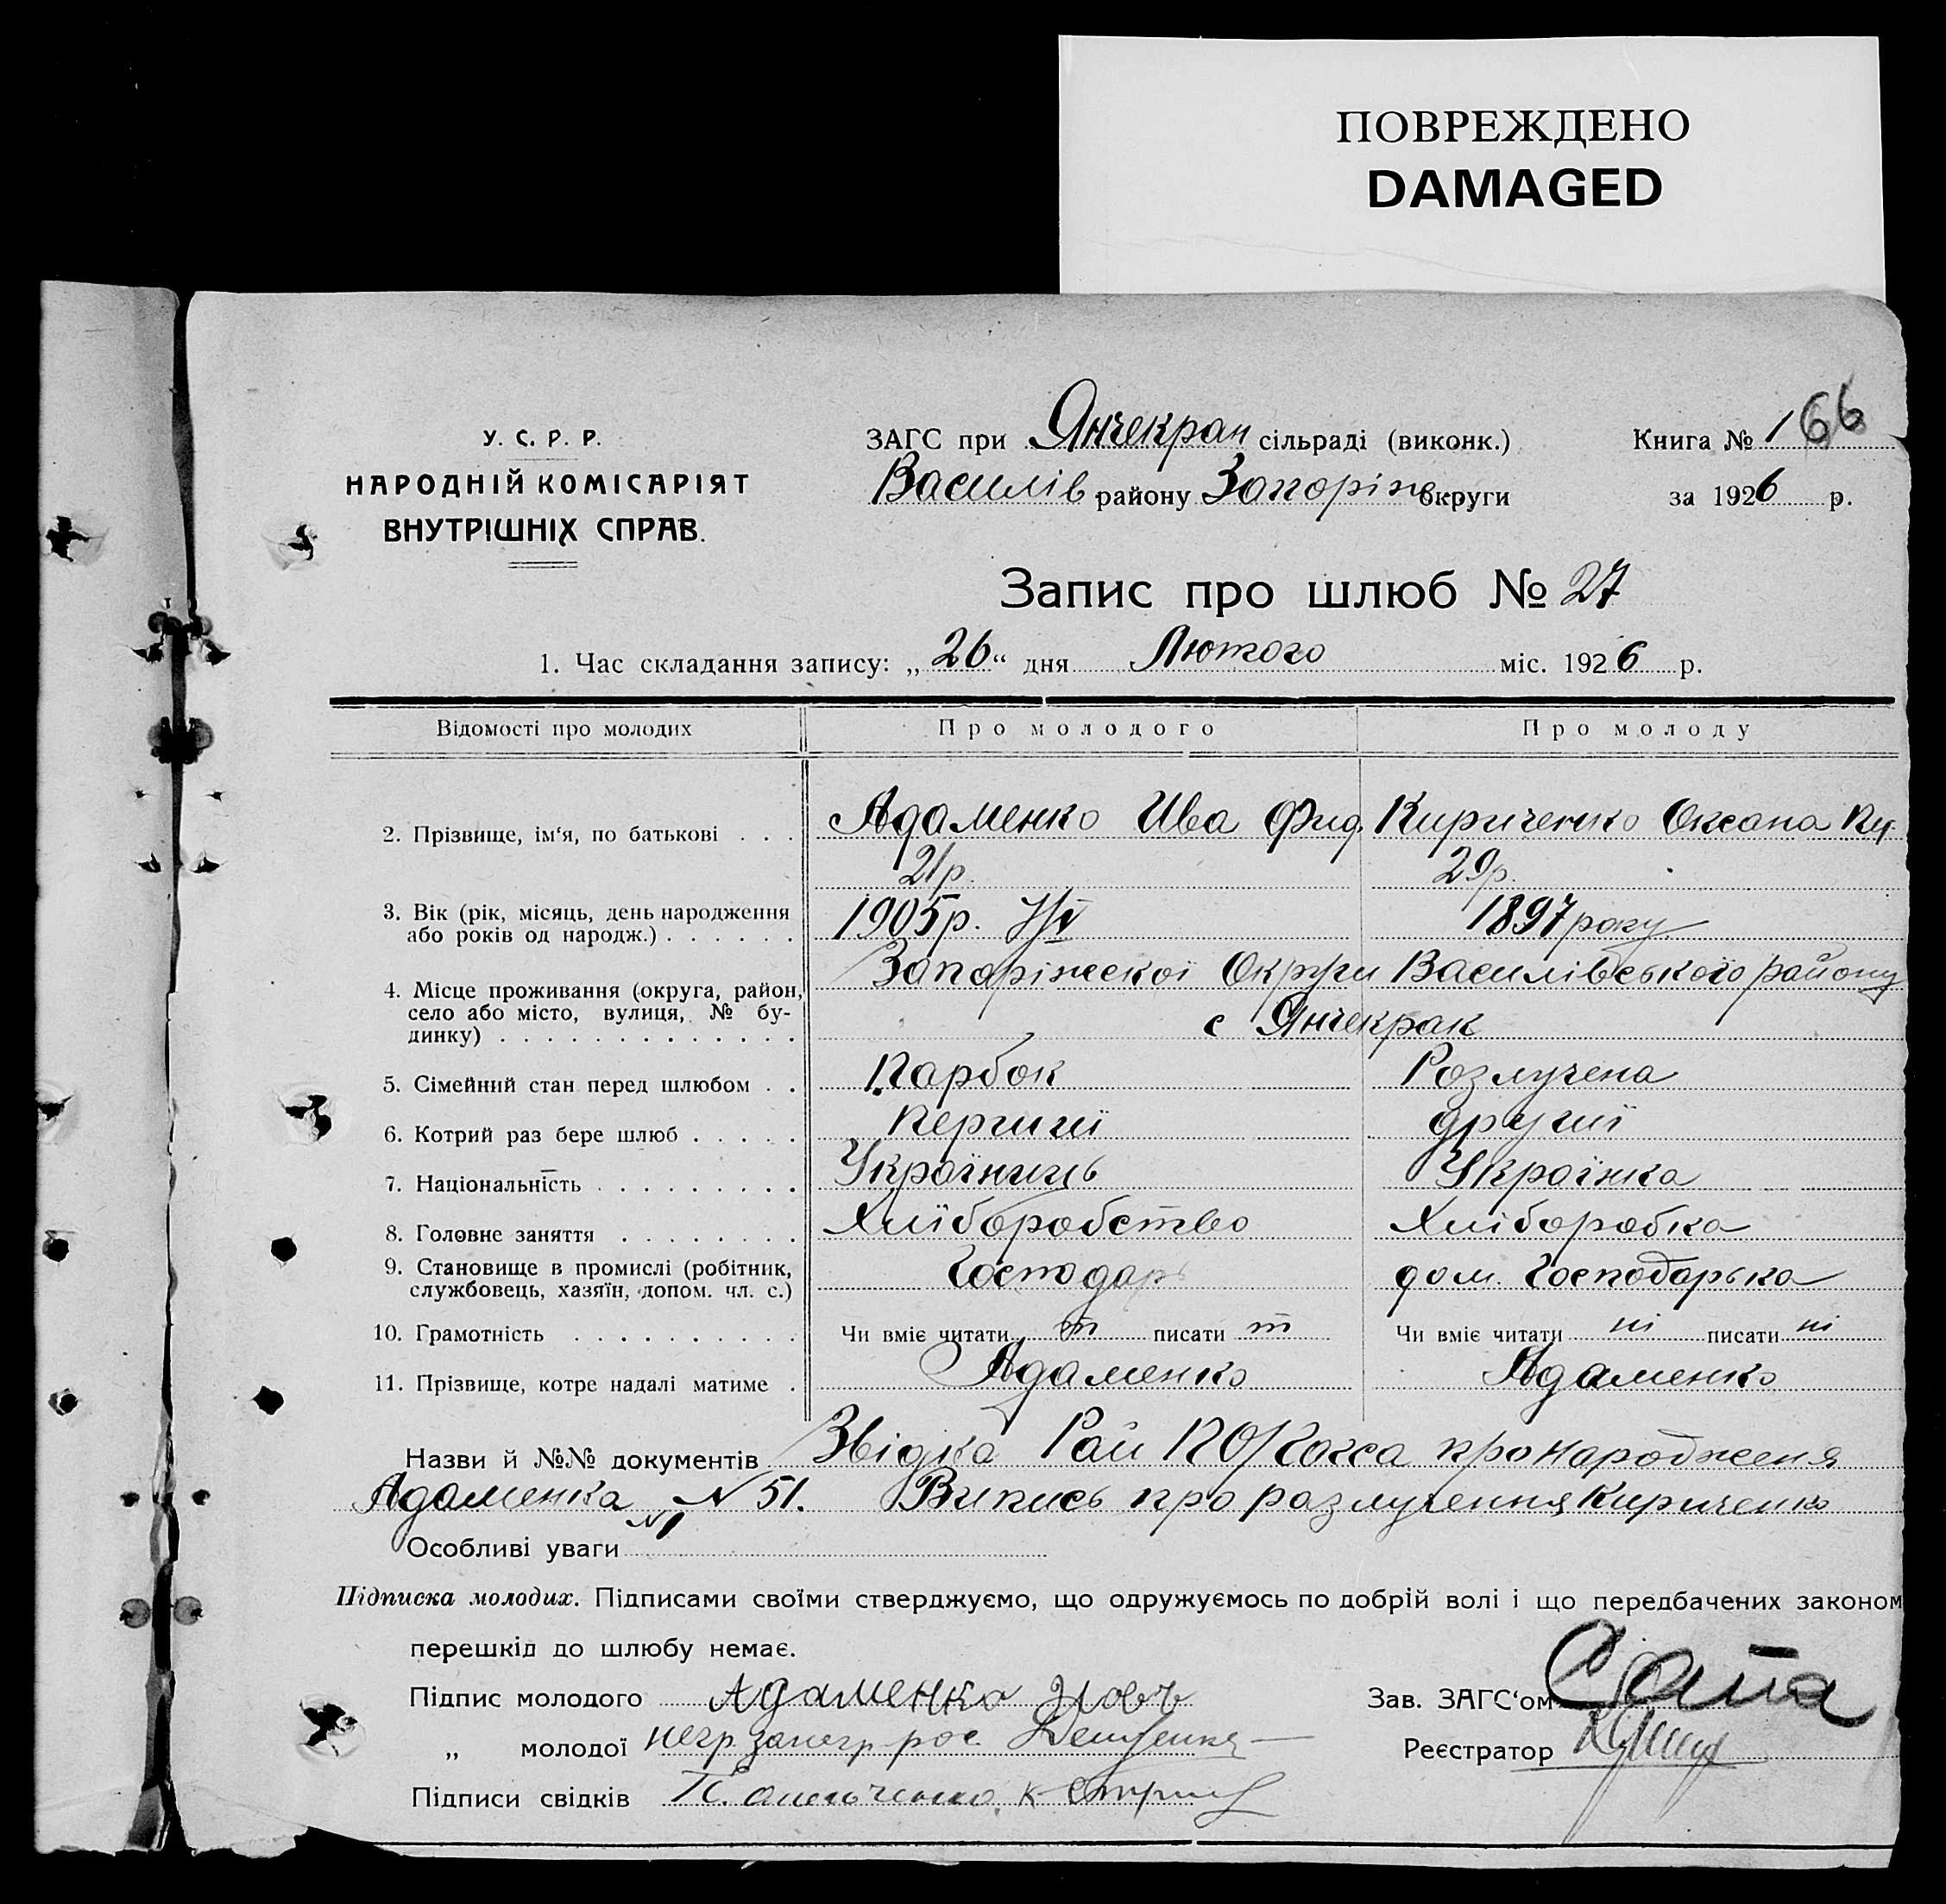 ПОВРЕЖДЕНО
DAMAGED
У. С. Р. Р.
НАРОДНІЙ КОМІСАРІЯТ
ВНУТРІШНІХ СПРАВ.
ЗАГС при Янчекрак сільраді (виконк.)
Книга № 1 66
Василів району Запоріж округи
за 1926 р.
Запис про шлюб № 27
1. Час складання запису: „26“ дня Лютого міс. 1926 р.
Відомості про молодих Про молодого Про молоду
2. Прізвище, ім'я, по батькові . . . Адаменко Ива Фид. Кириченко Оксана
21р. 29р.
3. Вік (рік, місяць, день народження
або років од народж.) . . . . . . 1905р. 1897 року
4. Місце проживання (округа, район,
село або місто, вулиця, № бу-
динку) . . . . . . . . . . . . .
Запоріжскої Округи Василівського району
с Янчекрак
5. Сімейний стан перед шлюбом . . Парбок Розлучена
6. Котрий раз бере шлюб . . . . . Перший другий
7. Національність . . . . . . . . . Україниць Українка
8. Головне заняття . . . . . . . . Хлїборобство Хлїборобка
9. Становище в промислі (робітник,
службовець, хазяїн, допом. чл. с.) Господарь дом. Господарька
10. Грамотність . . . . . . . . . . Чи вміє читати т писати т Чи вміє читати ні писати ні
11. Прізвище, котре надалі матиме . Адаменко Адаменко
Назви й №№ документів Звідка Рай про народженя
Адаменка N 51. Випись про разлучення Кириченко
N 1
Особливі уваги
Підписка молодих. Підписами своїми стверджуємо, що одружуємось по добрій волі і що передбачених законом
перешкід до шлюбу немає.
Підпис молодого Адаменко
Зав. ЗАГС'ом
„ молодої негр занегр рос
Реєстратор
Підписи свідків